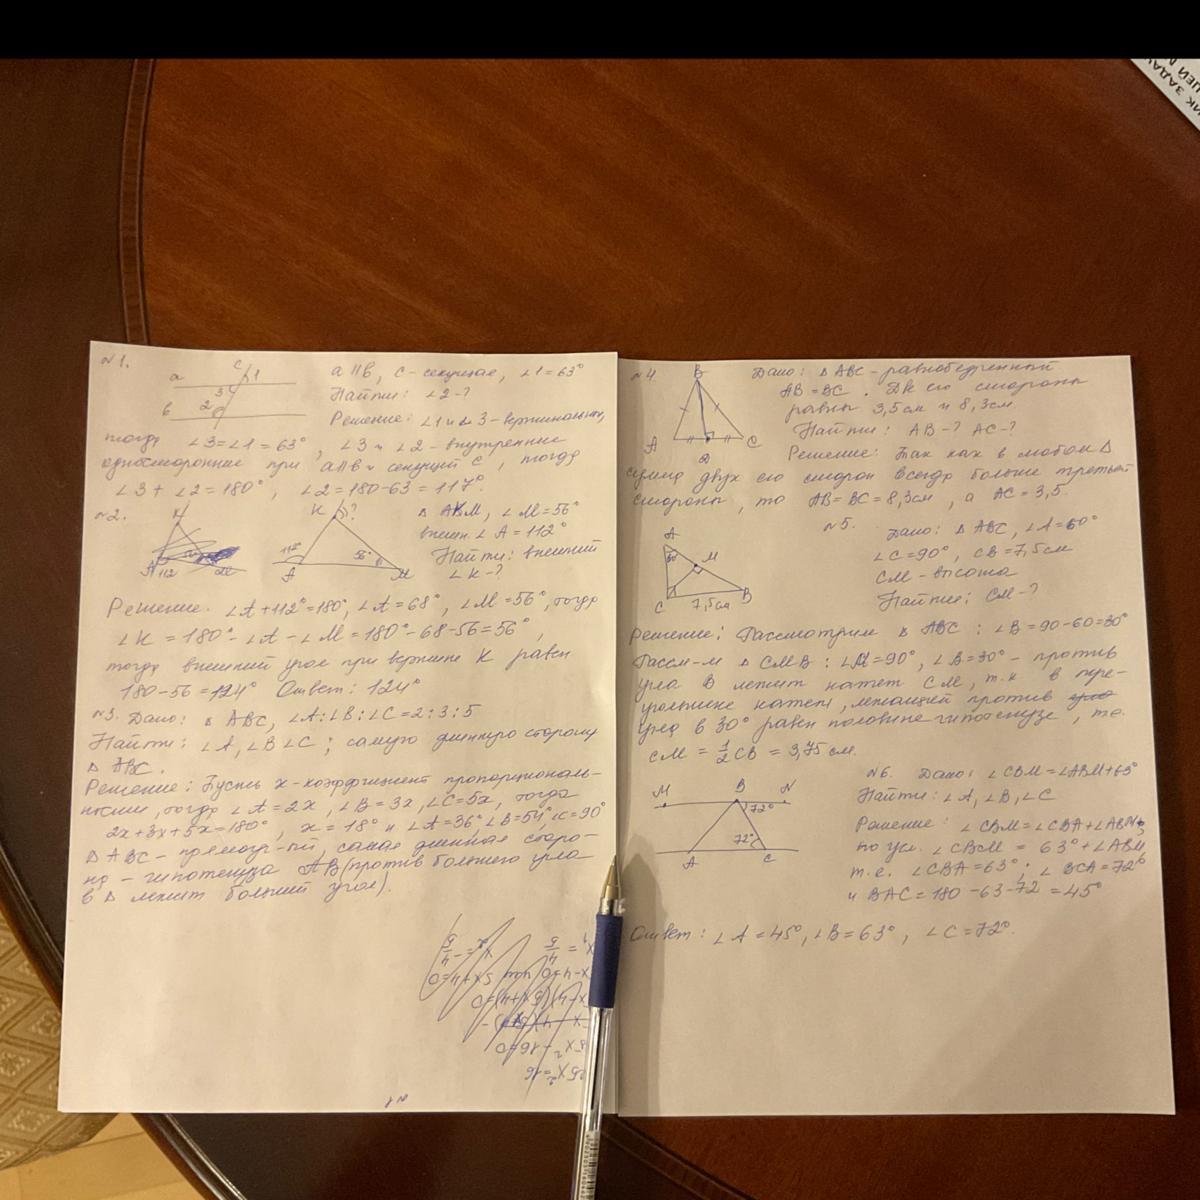 №1.
c
a
1
3
b
2
a || b, c - секущая, ∠1 = 63°
Найти: ∠2-?
Решение: ∠1 и ∠3 - вертикальные,
тогда ∠3=∠1=63°, ∠3 и ∠2 - внутренние
односторонние при a||b и секущей c, тогда
∠3 + ∠2 = 180°, ∠2 = 180-63 = 117°.
№2.
K
A
112
K
?
112°
56°
A
M
△ ABM, ∠M=56°
внешн. ∠A = 112°
Найти: внешний
∠K-?
Решение. ∠A+112°=180°, ∠A=68°, ∠M=56°, тогда
∠K = 180°-∠A-∠M=180°-68-56=56°,
тогда внешний угол при вершине K равен
180-56=124° Ответ: 124°
№3. Дано: △ ABC, ∠A:∠B:∠C=2:3:5
Найти: ∠A, ∠B ∠C; самую длинную сторону
△ ABC.
Решение: Пусть x-коэффициент пропорциональ-
ности, тогда ∠A=2x, ∠B=3x, ∠C=5x, тогда
2x+3x+5x=180°, x=18° и ∠A=36° ∠B=54° ∠C=90°
△ ABC - прямоуг-ый, самая длинная сторо-
на - гипотенуза AB (против большего угла
в △ лежит больший угол).
№1
25x²=16
25x²-16=0
x+4=0
5x+4=0
№4.
B
A
C
D
Дано: △ ABC - равнобедренный
AB=BC. Две его стороны
равны 3,5см и 8,3см.
Найти: AB-? AC-?
Решение: Так как в любом △
сумма двух его сторон всегда больше третьей
стороны, то AB=BC=8,3см, а AC=3,5.
№5.
A
60°
M
C
7,5см
B
Дано: △ ABC, ∠A=60°
∠C=90°, CB=7,5см
CM-высота
Найти: CM-?
Решение: Рассмотрим △ ABC: ∠B=90-60=30°
Рассм-м △ CMB: ∠M=90°, ∠B=30° - против
угла B лежит катет CM, т.к в пря-
угольнике катет, лежащий против угла
угла в 30° равен половине гипотенузе, т.е.
CM = 1/2 CB = 3,75 см.
№6. Дано: ∠CBM=∠ABM+63°
Найти: ∠A, ∠B, ∠C
M
B
N
72°
72°
A
C
Решение: ∠CBM=∠CBA+∠ABM,
по усл. ∠CBM = 63°+∠ABM,
т.е. ∠CBA=63°; ∠BCA=72°
и BAC=180-63-72=45°
Ответ: ∠A=45°, ∠B=63°, ∠C=72°.